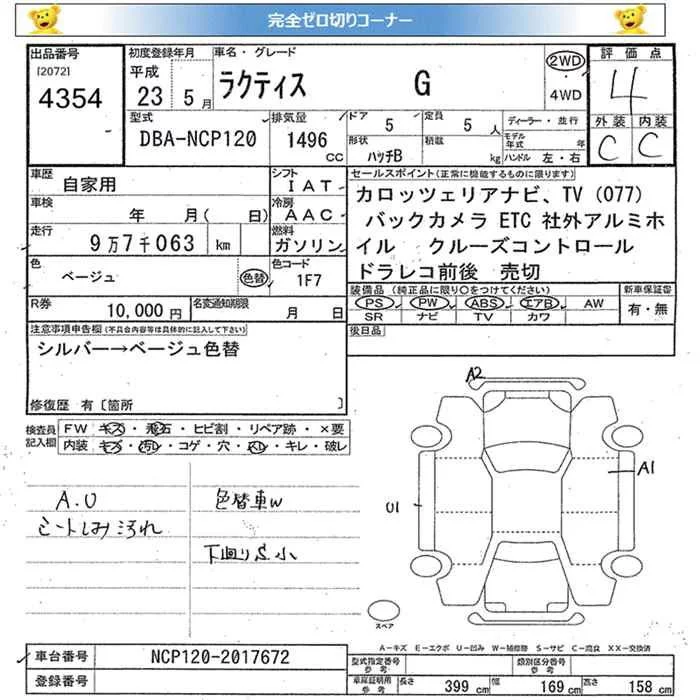 完全ゼロ切りコーナー
出品番号
[2072]
4354
初度登録年月
平成
23 5月
車名・グレード
ラクティス G
2WD
・
4WD
評価点
4
外装 内装
C C
型式
DBA-NCP120
排気量
1496
CC
ドア
5
定員
5人
形状
ハッチB
積載
kg
ディーラー・並行
モデル年式 年
ハンドル 左・右
車歴
自家用
シフト
IAT
車検
年 月( 日)
冷房
AAC
走行
9万7千063 km
燃料
ガソリン
色
ベージュ
色替
色コード
1F7
R券
10,000円
名変通知期限
月 日
セールスポイント(正常に機能するものに限ります)
カロッツェリアナビ、TV (077)
バックカメラ ETC 社外アルミホ
イル クルーズコントロール
ドラレコ前後 売切
装備品(純正品に限り○をつけてください)
PS PW ABS エアB AW
SR ナビ TV カワ
新車保証書
有・無
後日品
注意事項申告欄(不具合内容等は具体的に記入して下さい)
シルバー→ベージュ色替
修復歴 有〔箇所 〕
検査員記入欄
FW キズ・飛石・ヒビ割・リペア跡・×要
内装 キズ・汚レ・コゲ・穴・スレ・キレ・破レ
A.U
シートしみ汚れ
色替車W
下廻りS小
A2
A1
U1
スペア
A-キズ E-エクボ U-凹み W-補修跡 S-サビ C-腐食 XX-交換済
車台番号 NCP120-2017672
登録番号
型式指定番号
参考
類別区分番号
参考
車庫証明用
参考
長さ 399 cm 幅 169 cm 高さ 158 cm